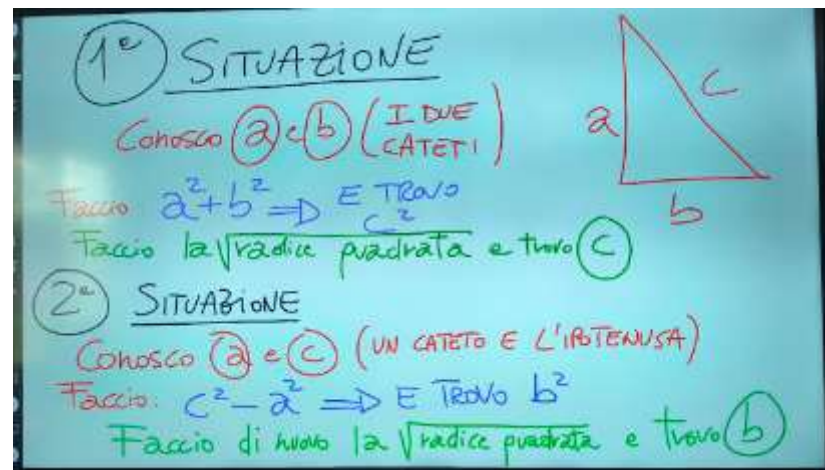 1ª SITUAZIONE
Conosco a e b (I DUE CATETI)
a
c
b
Faccio a²+b² => E TROVO c²
Faccio la √radice quadrata e trovo c
2ª SITUAZIONE
Conosco a e c (UN CATETO E L'IPOTENUSA)
Faccio: c²-a² => E TROVO b²
Faccio di nuovo la √radice quadrata e trovo b